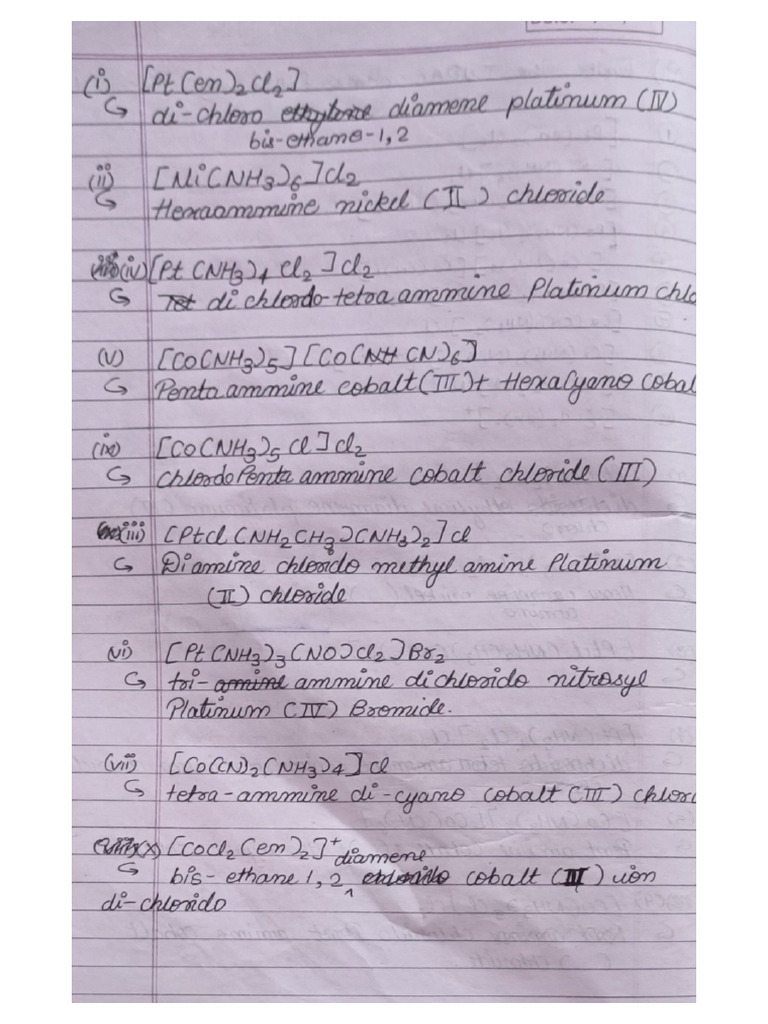 (i) [Pt(en)2Cl2]
↳ di-chloro ethylene diamene platinum (IV)
bis-ethane-1,2
(ii) [Ni(NH3)6]Cl2
↳ Hexaammine nickel (II) chloride
(iv) [Pt(NH3)4 Cl2]Cl2
↳ Tet di chlordo-tetra ammine Platinium chlo
(v) [Co(NH3)5][Co(NH CN)6]
↳ Penta ammine cobalt(III)+ Hexacyano cobal
(ix) [Co(NH3)5 Cl]Cl2
↳ chlordo Penta ammine cobalt chloride (III)
(iii) [PtCl(NH2CH3)(NH3)2]Cl
↳ Diamine chlorido methyl amine Platinum
(II) chloride
(vi) [Pt(NH3)3(NO)Cl2]Br2
↳ tri-amine ammine dichlorido nitrosyl
Platinum (IV) Bromide.
(vii) [Co(CN)2(NH3)4]Cl
↳ tetra-ammine di-cyano cobalt (III) chlori
(x) [CoCl2(en)2]+
diamene
↳ bis-ethane 1,2 ^ chlorido cobalt (III) ion
di-chlorido